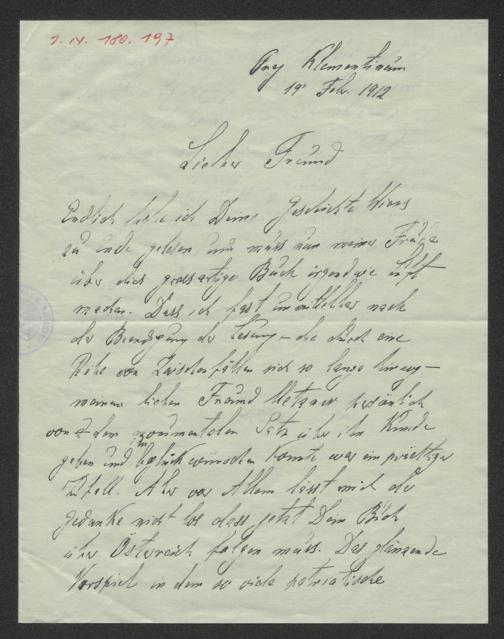 I. N. 180.197
Prag Klementinum
19. Febr. 1912
Lieber Freund
Endlich habe ich Deine Geschichte Wiens
zu Ende gelesen und muss nun meiner Freude
über dies grossartige Buch irgendwie Luft
machen. Dass ich fast unmittelbar nach
der Beendigung der Lesung – die durch eine
Reihe von Zwischenfällen sich so lange hinzog –
meinem lieben Freund Metzner persönlich
von dem monumentalen Satz über ihn Kunde
geben und ihn beglückwünschen konnte war ein prächtiger
Zufall. Aber vor Allem lässt mich der
Gedanke nicht los dass jetzt Dein Buch
über Österreich folgen muss. Das glänzende
Vorspiel in dem so viele patriotische